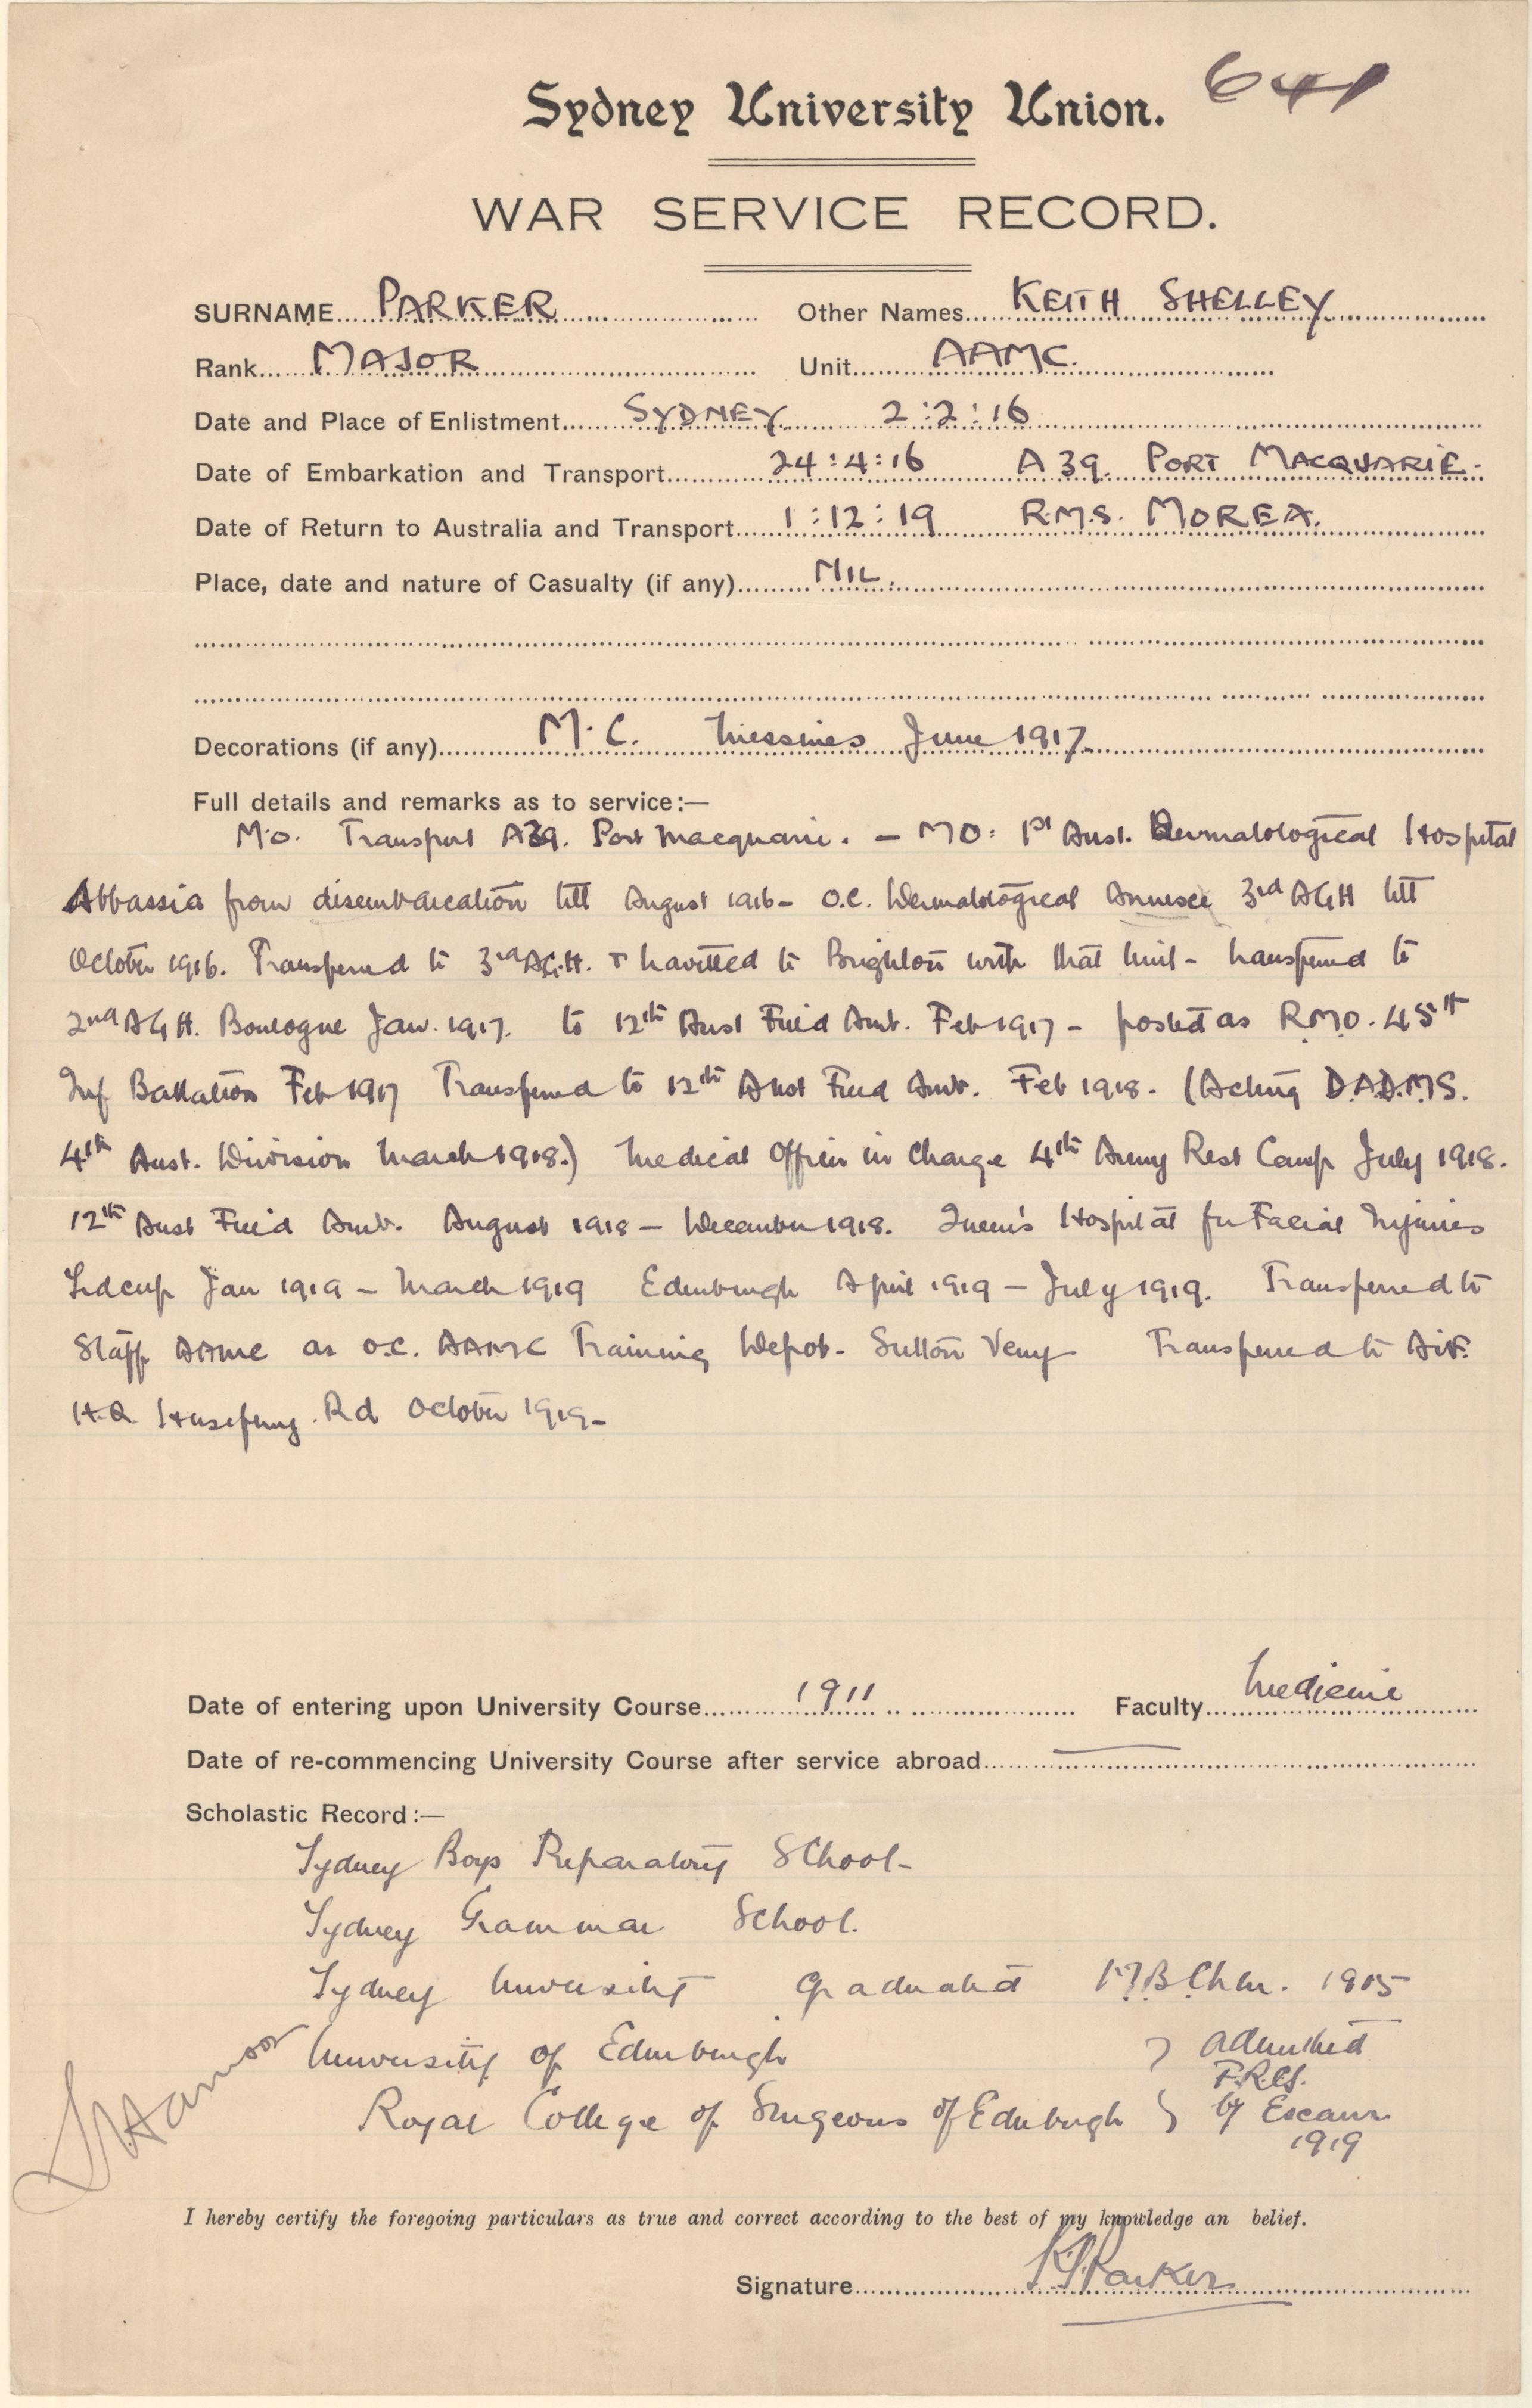 Sydney University Union. 641
WAR SERVICE RECORD.
SURNAME PARKER Other Names KEITH SHELLEY
Rank MAJOR Unit AAMC.
Date and Place of Enlistment SYDNEY 2:2:16
Date of Embarkation and Transport 24:4:16 A39. PORT MACQUARIE.
Date of Return to Australia and Transport 1:12:19 R.M.S. MOREA.
Place, date and nature of Casualty (if any) NIL.
Decorations (if any) M.C. Messines June 1917.
Full details and remarks as to service:—
M.O. Transport A39. Port Macquarie. — MO. 1st Aust. Dermatological Hospital
Abbassia from disembarcation till August 1916 - O.C. Dermatological Annexe 3rd AGH till
October 1916. Transferred to 3rd AG.H. & travelled to Brighton with that Unit - transferred to
2nd AGH. Boulogne Jan. 1917. to 12th Aust Field Amb. Feb 1917 - posted as R.M.O. 45th
Inf Battalion Feb 1917 Transferred to 12th Aust Field Amb. Feb 1918. (Acting D.A.D.M.S.
4th Aust. Division March 1918.) Medical Officer in Charge 4th Army Rest Camp July 1918.
12th Aust Field Amb. August 1918 — December 1918. Queen's Hospital for Facial Injuries
Sidcup Jan 1919 — March 1919 Edinburgh April 1919 — July 1919. Transferred to
Staff AAMC as O.C. AAMC Training Depot. Sutton Veny Transferred to A.I.F.
H.Q. Horseferry Rd October 1919 -
Date of entering upon University Course 1911 Faculty Medicine
Date of re-commencing University Course after service abroad —
Scholastic Record:—
Sydney Boys Preparatory School -
Sydney Grammar School.
Sydney University graduated M.B.Ch.M. 1915
University of Edinburgh } admitted
F.R.C.S.
Royal College of Surgeons of Edinburgh } by Exam.
1919
I hereby certify the foregoing particulars as true and correct according to the best of my knowledge an belief.
Signature K.S. Parker